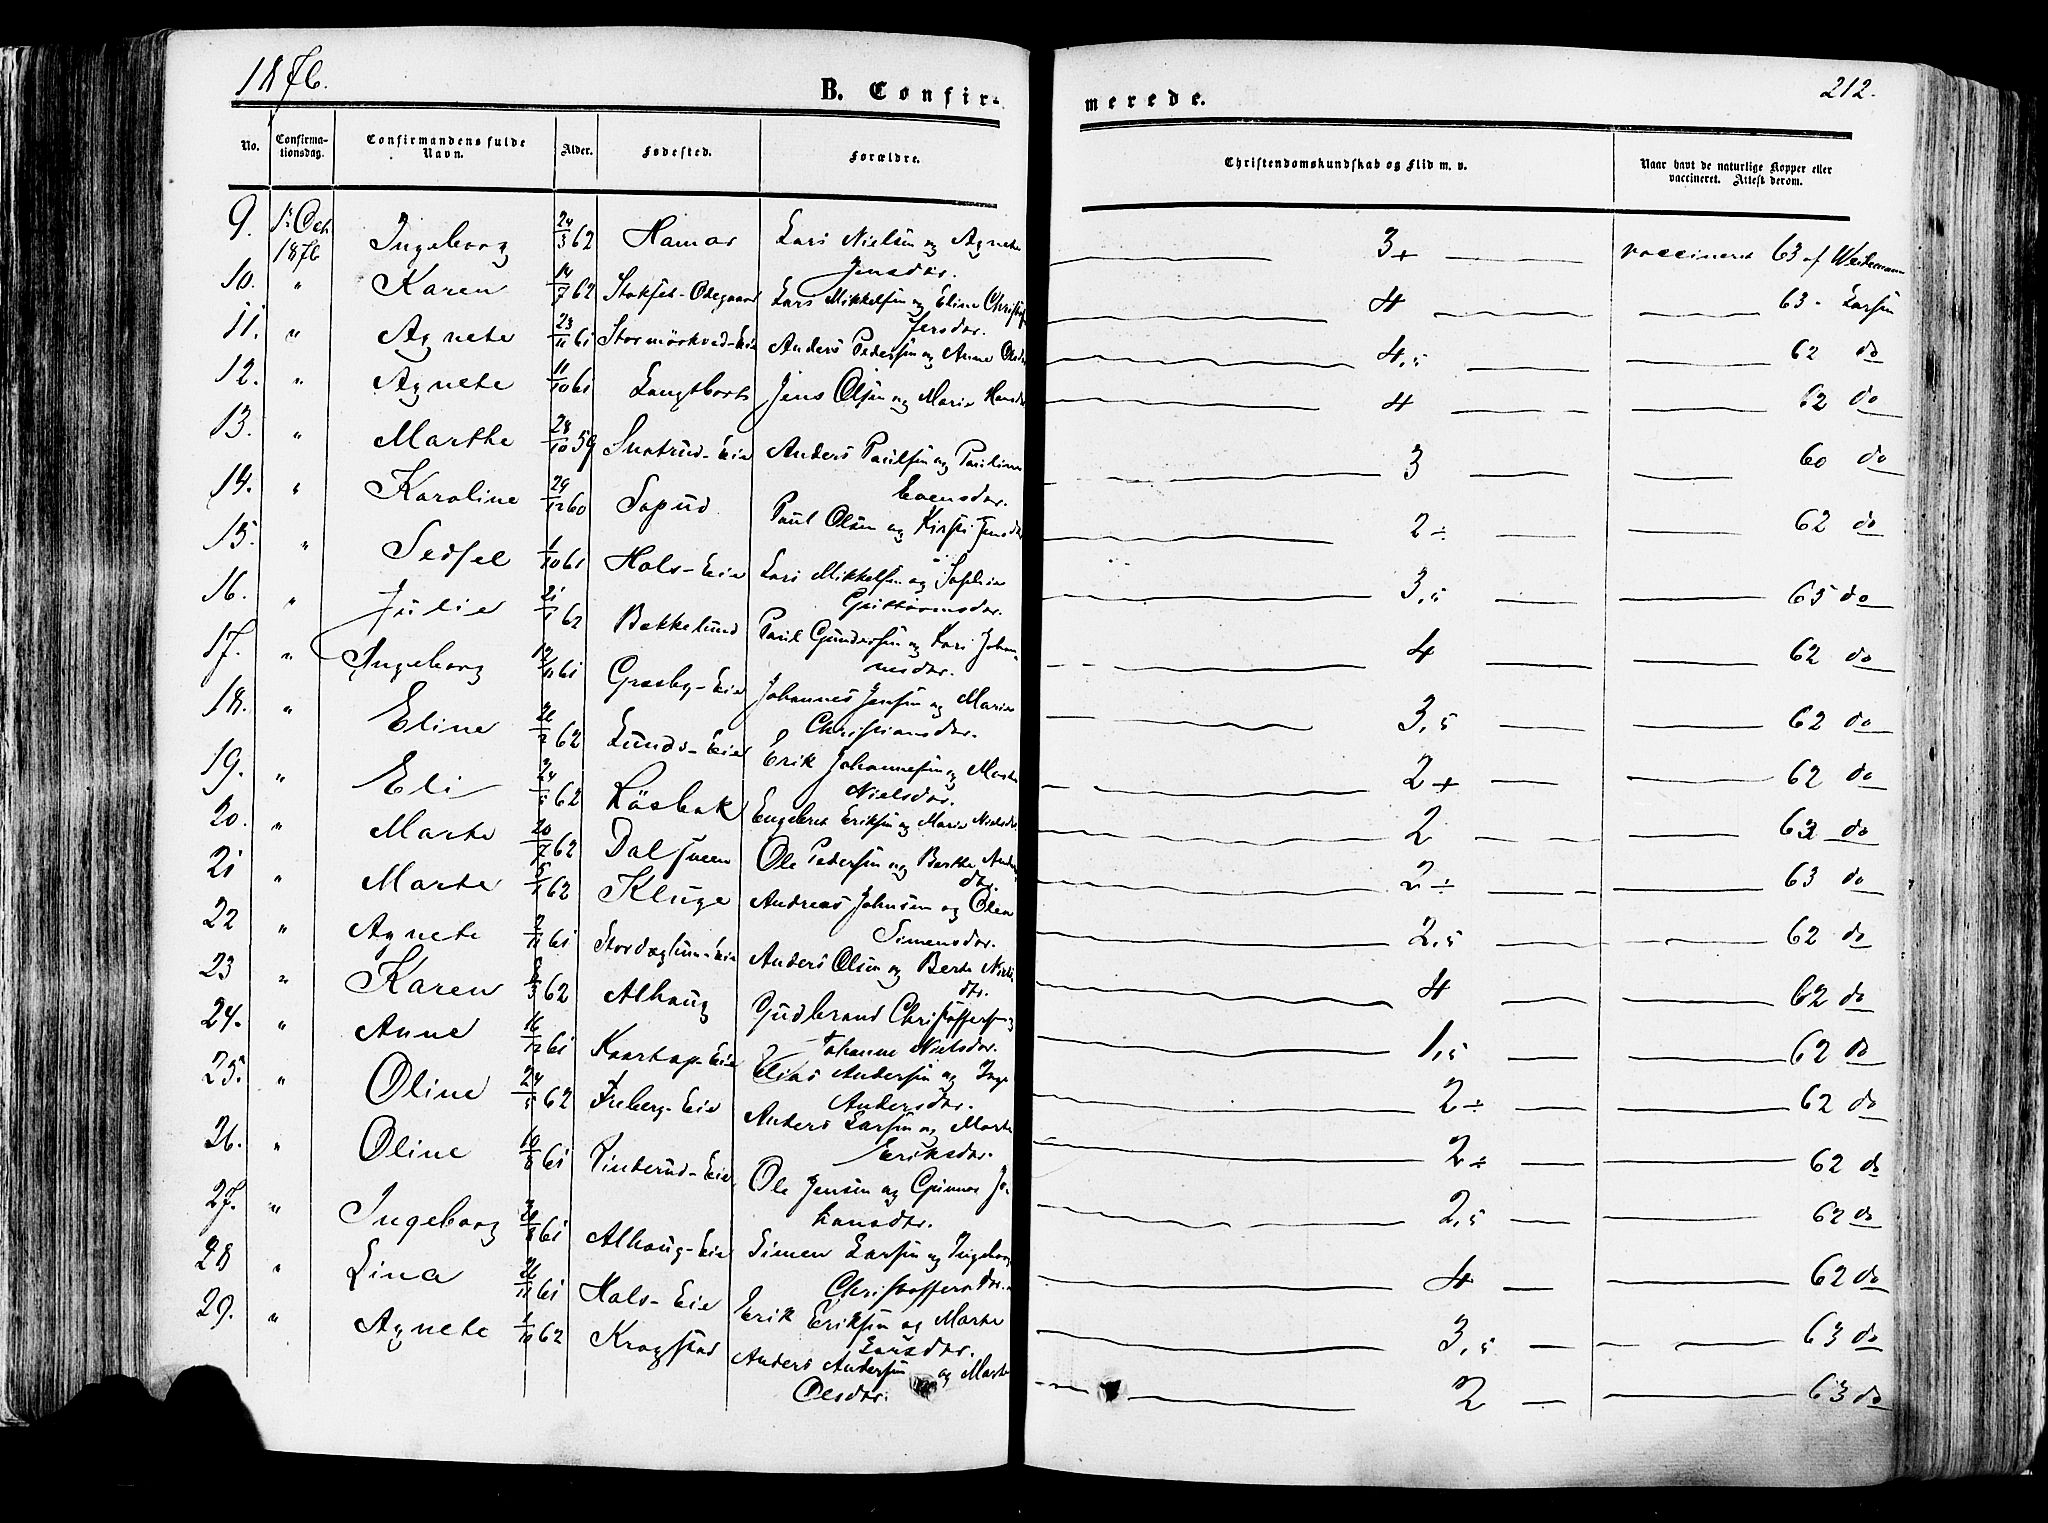 1876.
B. Confir-
merede.
212.
No.
Confirma-
tionsdag.
Confirmandens fulde
Navn.
Alder.
Fødested.
Forældre.
Christendomskundskab og Flid m. v.
Naar havt de naturlige Kopper eller
vaccineret. Attest derom.
9. 1. Oct. 1876 Ingeborg 24/3 62 Hamar Lars Nielsen og Agnete
Jensdtr. 3+ vaccineret 63 af
10. " Karen 14/7 62 Lars Mikkelsen og Eline
4 63 - Larsen
11. " Agnete 23/11 61 Anders Pedersen og Anne Olsdtr 4,5 62 do
12. " Agnete 11/10 61 Jens Olsen og Marie Hansdtr 4 62 do
13. " Marthe 28/10 59 Anders Paulsen og Pauline
Evensdtr. 3 60 do
14. " Karoline 29/12 60 Paul Olsen og Kirsti Jensdtr 2÷ 62 do
15. " Sedsel 1/10 61 Hols-Eie Lars Mikkelsen og Sophie
3,5 65 do
16. " Julie 62 Bakkelund Paul Gundersen og Kari Johan-
nesdtr. 4 62 do
17. " Ingeborg 61 Græsby-Eie Johannes Jensen og Marie
Christiansdtr. 3,5 62 do
18. " Eline 62 Lunds-Eie Erik Johannesen og Marte
Nielsdtr. 2+ 62 do
19. " Eli 62 Engebret Eriksen og Marie Nielsdtr 2 63 do
20. " Marte 20/7 62 Ole Pedersen og Berthe Anders
dtr. 2÷ 63 do
21 " Marte 62 Kluge Andreas Johnsen og Olea
Simensdtr. 2,5 62 do
22 " Agnete 2/11 61 Anders Olsen og Berte Niels
dtr. 4 62 do
23 " Karen 62 Alhaug Gudbrand Christoffersen og
Johanne Nielsdtr. 1,5 62 do
24. " Anne 16/12 61 Elias Andersen og Inge
Andersdtr. 2÷ 62 do
25. " Oline 24/5 62 Freberg-Eie Anders Larsen og Marte
Eriksdtr. 2÷ 62 do
26. " Oline 61 Ole Jensen og Gunnor Jo-
hansdtr. 2,5 62 do
27. " Ingeborg 61 Alhaug-Eie Simen Larsen og Ingeborg
Christoffersdtr. 4 62 do
28 " Lina 61 Hols-Eie Erik Eriksen og Marte
Larsdtr. 3,5 63 do
29. " Agnete 62 Kragstad Anders Andersen og Marte
Olsdtr. 2 63 do